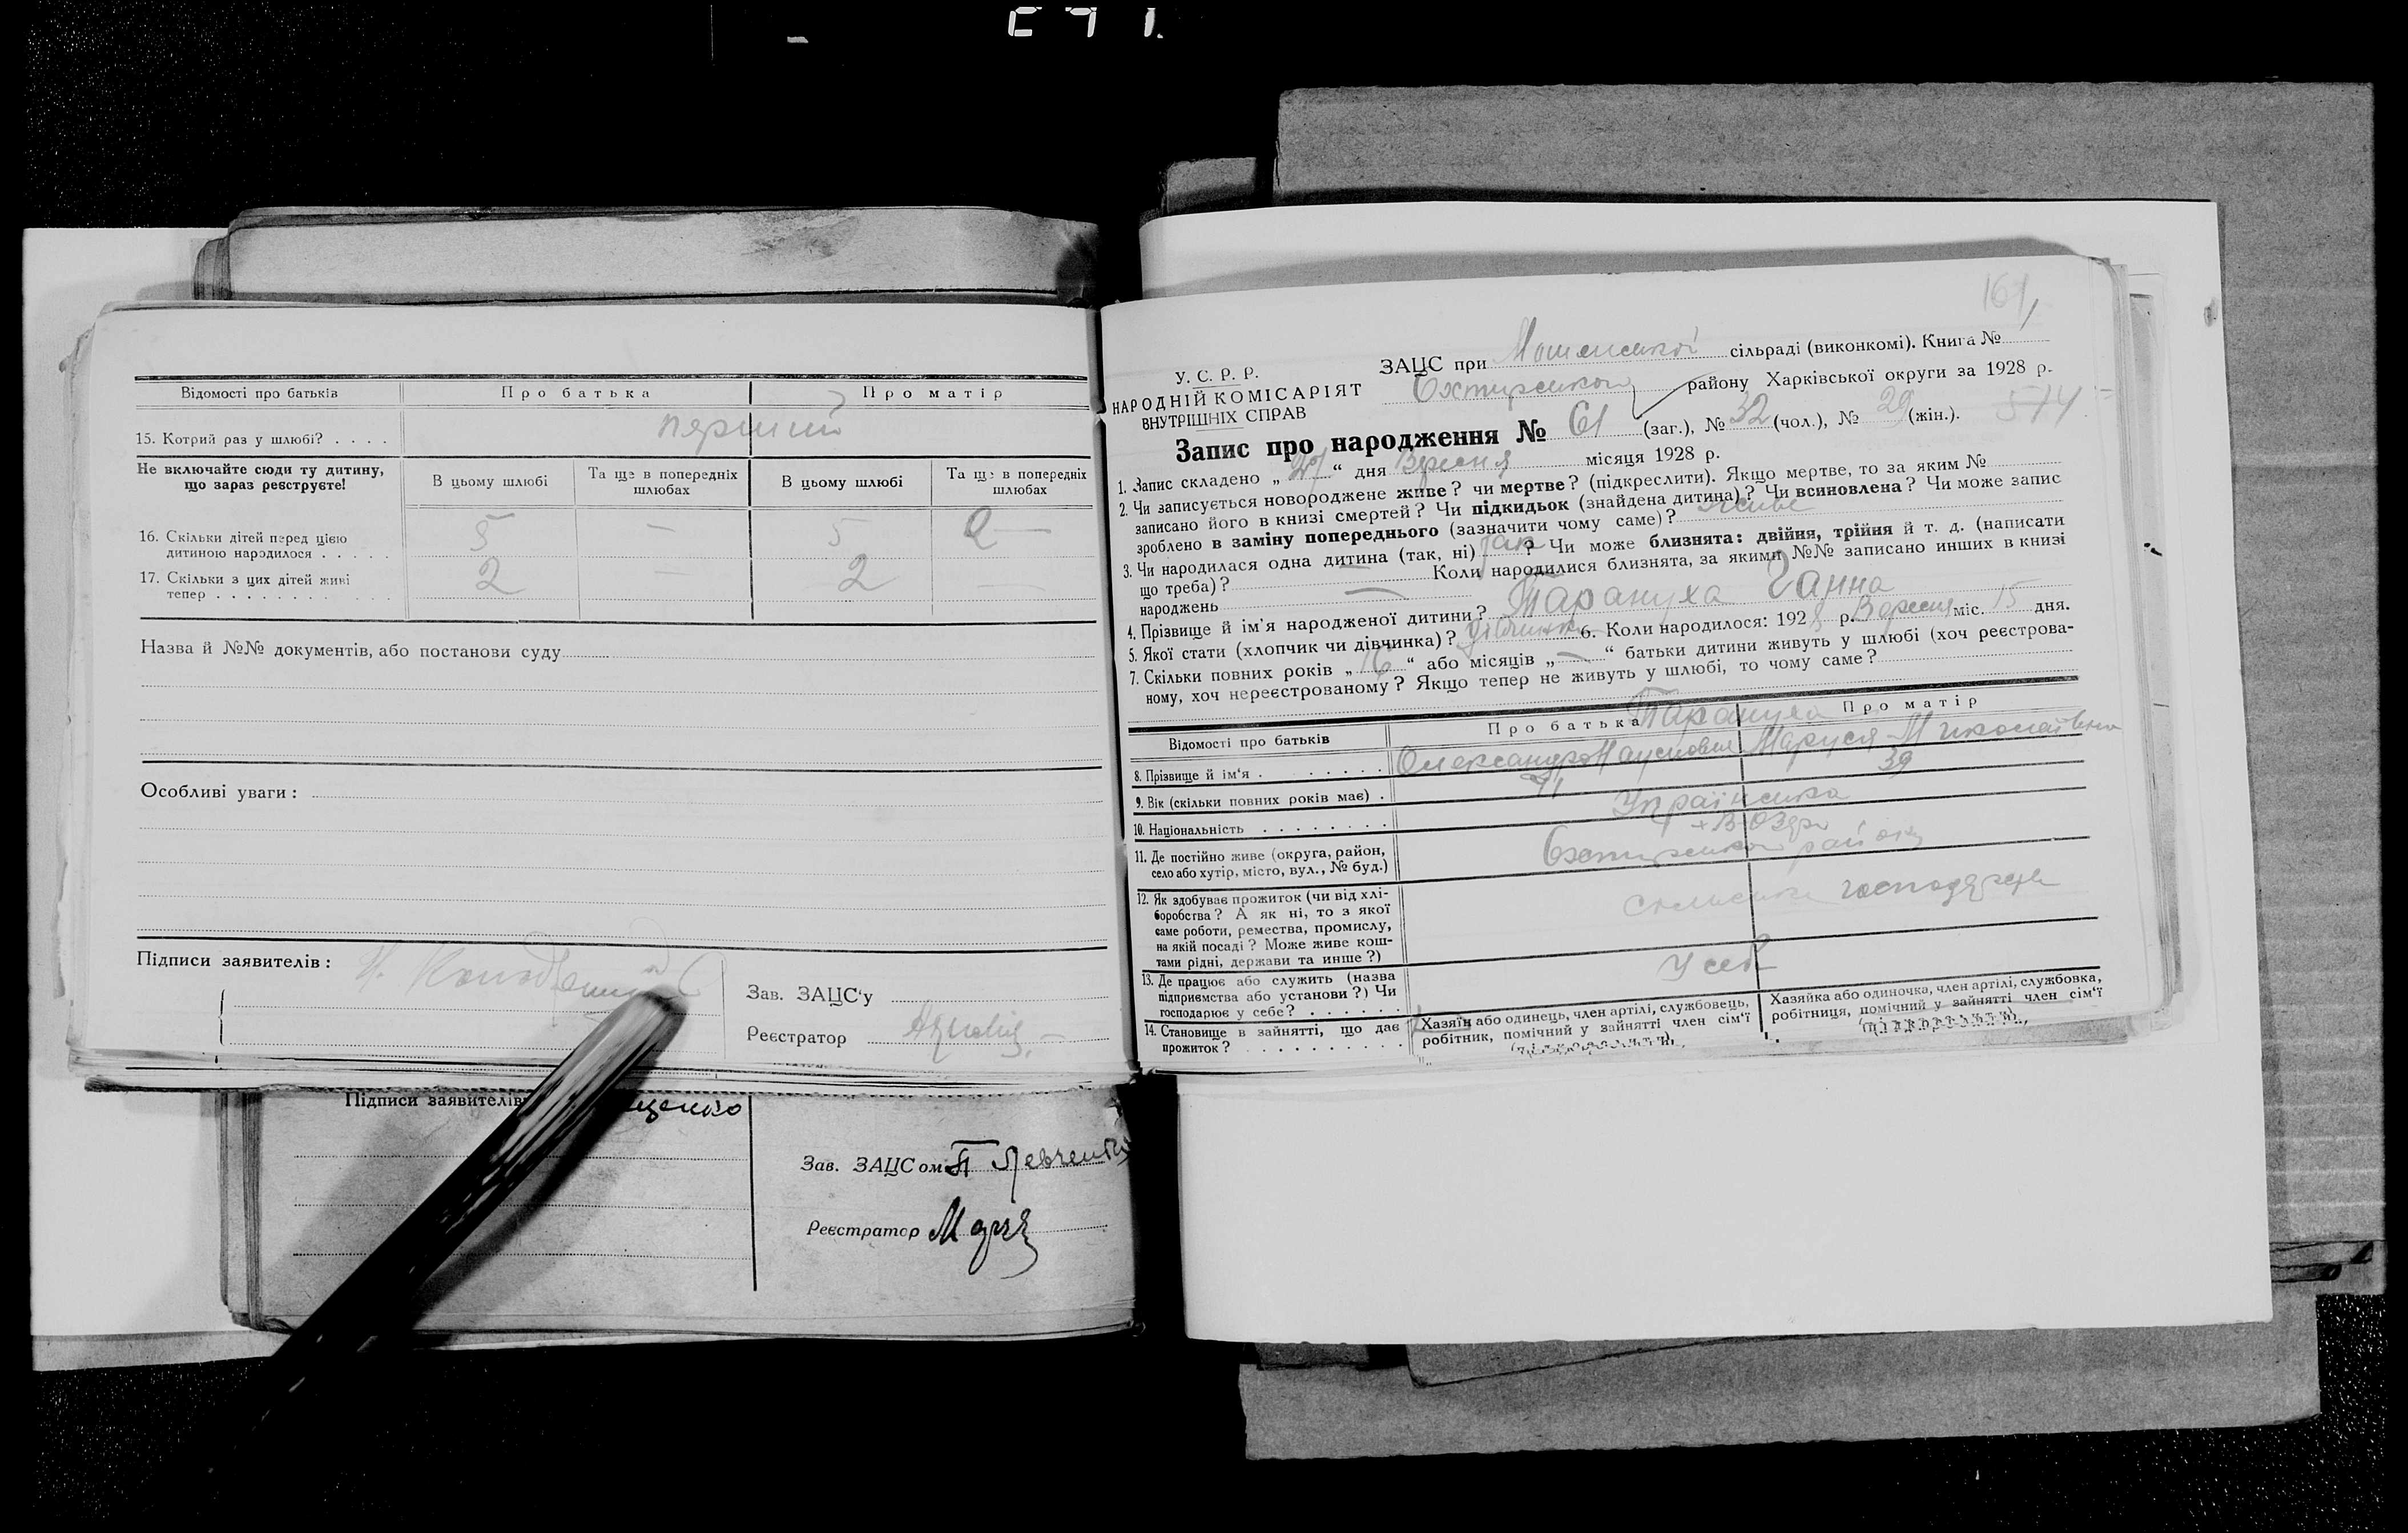 Відомості про батьків Про батька Про матір
15. Котрий раз у шлюбі? . . . . перший
Не включайте сюди ту дитину,
що зараз реєструєте!
В цьому шлюбі Та ще в попередніх шлюбах В цьому шлюбі Та ще в попередніх шлюбах
16. Скільки дітей перед цією
дитиною народилося . . . . . 5 — 5 —
17. Скільки з цих дітей живі
тепер . . . . . . . . . . . 2 — 2 —
Назва й №№ документів, або постанови суду
Особливі уваги:
Підписи заявителів:
Зав. ЗАЦС'у
Реєстратор
Підписи заявителів
щенко
Зав. ЗАЦСом
Реєстратор
161
У. С. Р. Р.
НАРОДНІЙ КОМІСАРІЯТ
ВНУТРІШНІХ СПРАВ
ЗАЦС при сільраді (виконкомі). Книга №
Охтирського району Харківської округи за 1928 р.
Запис про народження № 61 (заг.), № 32 (чол.), № 29 (жін.). 574
1. Запис складено „ “ дня Вересня місяця 1928 р.
2. Чи записується новороджене живе? чи мертве? (підкреслити). Якщо мертве, то за яким №
записано його в книзі смертей? Чи підкидьок (знайдена дитина)? Чи всиновлена? Чи може запис
зроблено в заміну попереднього (зазначити чому саме)? живе
3. Чи народилася одна дитина (так, ні) так ? Чи може близнята: двійня, трійня й т. д. (написати
що треба)? — Коли народилися близнята, за якими №№ записано инших в книзі
народжень —
4. Прізвище й ім'я народженої дитини? Тарануха Ганна
5. Якої стати (хлопчик чи дівчинка)? дівчинка 6. Коли народилося: 1928 р. Вересня міс. 15 дня.
7. Скільки повних років „16“ або місяців „—“ батьки дитини живуть у шлюбі (хоч реєстрова-
ному, хоч нереєстрованому? Якщо тепер не живуть у шлюбі, то чому саме?
Відомості про батьків Про батька Про матір
Тарануха
8. Прізвище й ім'я . . . . . . Олександр Наумович Маруся Миколаївна
9. Вік (скільки повних років має) . 41 39
10. Національність . . . . . . . . Українська
11. Де постійно живе (округа, район,
село або хутір, місто, вул., № буд.)
Охтирського району
12. Як здобуває прожиток (чи від хлі-
боробства? А як ні, то з якої
саме роботи, ремества, промислу,
на якій посаді? Може живе кош-
тами рідні, держави та инше?)
господарця
13. Де працює або служить (назва
підприємства або установи?) Чи
господарює у себе? . . . . . .
У себе
14. Становище в зайнятті, що дає
прожиток? . . . . . . . . . .
Хазяїн або одинець, член артілі, службовець,
робітник, помічний у зайнятті член сім'ї
(підкреслити).
Хазяйка або одиночка, член артілі, службовка,
робітниця, помічний у зайнятті член сім'ї
(підкреслити).